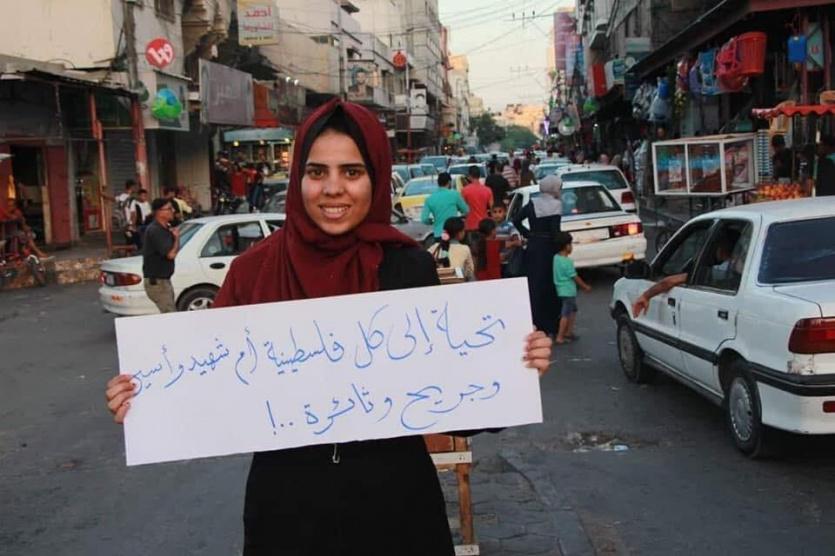 تحية إلى كل فلسطينية أم شهيد وأسير
وجريح وثائرة ..!
أحمد